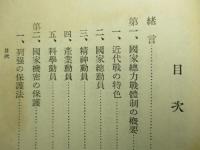 目次
緒言
第一、國家總力戰體制の概要
一、近代戰の特色
二、國家總動員
三、精神動員
四、產業動員
五、科學動員
第二、國家機密の保護
一、列强の保護法
目次